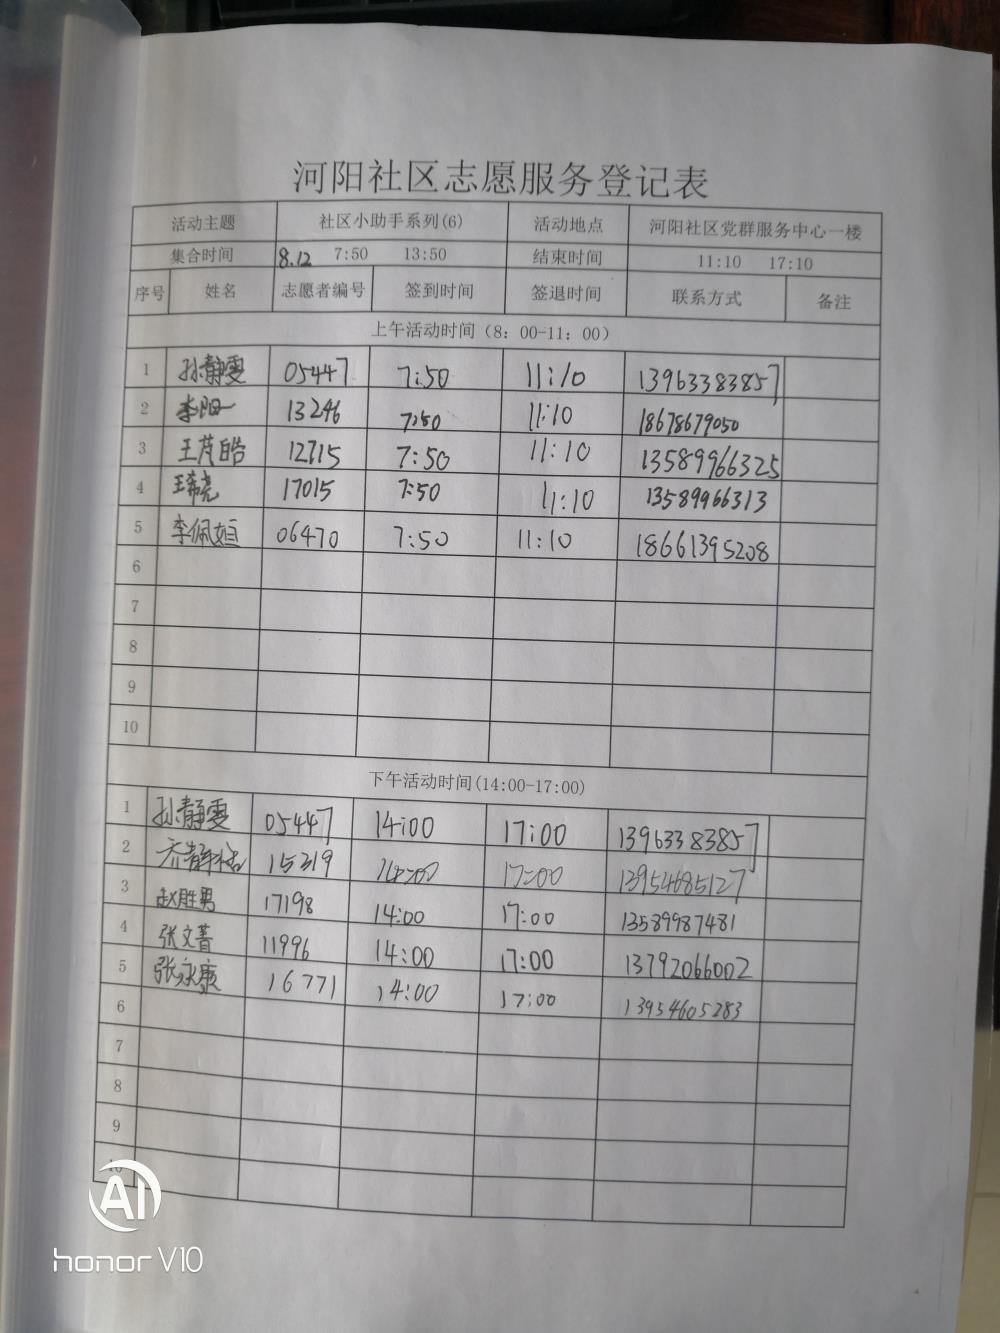 河阳社区志愿服务登记表
活动主题 社区小助手系列(6) 活动地点 河阳社区党群服务中心一楼
集合时间 8.12 7:50 13:50 结束时间 11:10 17:10
序号 姓名 志愿者编号 签到时间 签退时间 联系方式 备注
上午活动时间（8：00-11：00）
1 孙静雯 05447 7:50 11:10 13963383857
2 李阳 13246 7:50 11:10 18678679050
3 王芃皓 12715 7:50 11:10 13589966325
4 王希尧 17015 7:50 11:10 13589966313
5 李佩姮 06470 7:50 11:10 18661395208
6
7
8
9
10
下午活动时间(14:00-17:00)
1 孙静雯 05447 14:00 17:00 13963383857
2 乔静 15319 14:00 17:00 13954685127
3 赵胜男 17198 14:00 17:00 13589987481
4 张文菁 11996 14:00 17:00 13792066002
5 张永康 16771 14:00 17:00 13954605283
6
7
8
9
10
AI
honor V10